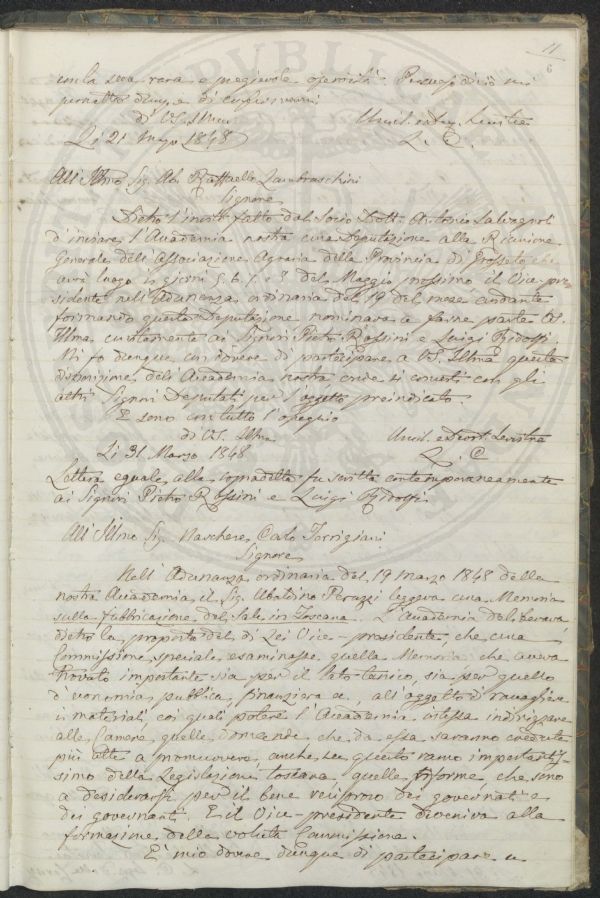 11
6
con la sua rara e pregievole
permetto dunque di
di VS. Illma
Li 21 Marzo 1848
L. C.
All' Illmo Sig. Ab. Raffaello Lambruschini
Signore
Dietro l'invito fatto dal Socio Dott. Antonio Salvagnoli
d'inviare l'Accademia nostra una Deputazione alla Riunione
Generale dell'Associazione Agraria della Provincia di Grosseto che
avrà luogo i giorni 5. 6. 7. e 8 del Maggio prossimo il Vice-pre
sidente nell'Adunanza ordinaria del 19 del mese andante
formando questa Deputazione nominava a farne parte VS.
Illma unitamente ai Signori Pietro Rossini e Luigi Ridolfi.
Mi fo dunque un dovere di partecipare a VS. Illma questa
dell'Accademia nostra onde si concerti con gli
altri Signori Deputati per l'oggetto preindicato.
E sono con tutto l'ossequio
di VS. Illma
Li 31. Marzo 1848.
Umil. e Devot. Servitore
L. C.
Lettera eguale alla sopradetta fu scritta contemporaneamente
ai Signori Pietro Rossini e Luigi Ridolfi.
All' Illmo Sig. Marchese Carlo Torrigiani
Signore
Nell'Adunanza ordinaria del 19 Marzo 1848 della
nostra Accademia il Sig. Ubaldino Peruzzi leggeva una Memoria
sulla fabbricazione del Sale in Toscana. L'Accademia deliberava,
dietro la proposta del di Lei Vice-presidente, che una
Commissione speciale esaminasse quella Memoria che aveva
trovato importante sia per il lato tecnico, sia per quello
d'economia pubblica, finanziera ec, all'oggetto di
i materiali, coi quali potere l'Accademia istessa indirizzare
alle Camere quelle domande che da essa saranno credute
più atte a promuovere anche in questo ramo importantis-
simo della Legislazione toscana quelle riforme che sono
a desiderarsi per il bene reciproco dei governati e
dei governanti. E il Vice-presidente diveniva alla
formazione della voluta Commissione.
E' mio dovere dunque di partecipare a